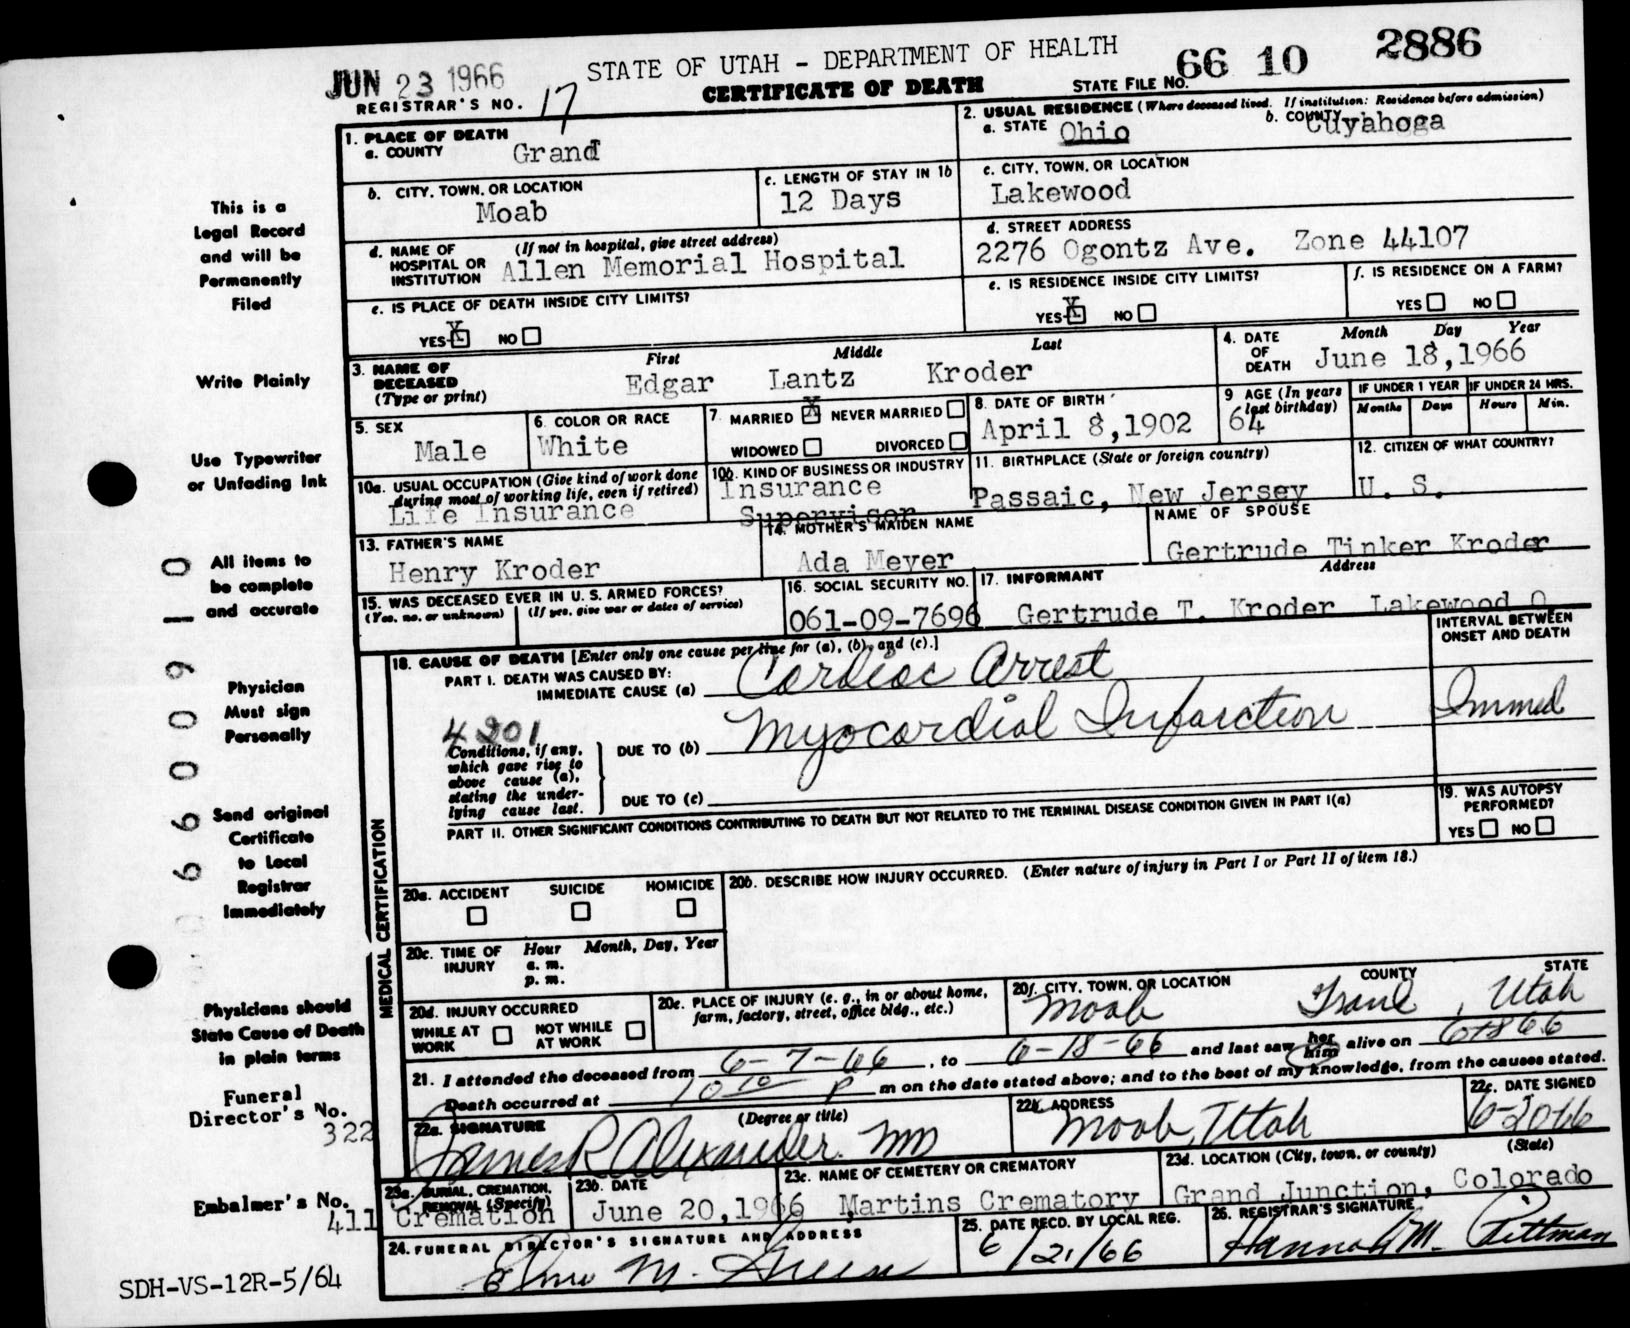 JUN 23 1966
STATE OF UTAH - DEPARTMENT OF HEALTH
66 10 2886
REGISTRAR'S NO. 17
CERTIFICATE OF DEATH
STATE FILE NO.
1. PLACE OF DEATH
a. COUNTY Grand
2. USUAL RESIDENCE (Where deceased lived. If institution: Residence before admission)
a. STATE Ohio
b. COUNTY Cuyahoga
b. CITY, TOWN, OR LOCATION
Moab
c. LENGTH OF STAY IN 1b
12 Days
c. CITY, TOWN, OR LOCATION
Lakewood
d. NAME OF HOSPITAL OR INSTITUTION (If not in hospital, give street address)
Allen Memorial Hospital
d. STREET ADDRESS
2276 Ogontz Ave. Zone 44107
e. IS PLACE OF DEATH INSIDE CITY LIMITS?
YES X NO
e. IS RESIDENCE INSIDE CITY LIMITS?
YES X NO
f. IS RESIDENCE ON A FARM?
YES NO
3. NAME OF DECEASED (Type or print)
First Middle Last
Edgar Lantz Kroder
4. DATE OF DEATH
Month Day Year
June 18,1966
5. SEX
Male
6. COLOR OR RACE
White
7. MARRIED X NEVER MARRIED
WIDOWED DIVORCED
8. DATE OF BIRTH
April 8,1902
9 AGE (In years last birthday)
64
IF UNDER 1 YEAR
Months Days
IF UNDER 24 HRS.
Hours Min.
10a. USUAL OCCUPATION (Give kind of work done during most of working life, even if retired)
Life Insurance
10b. KIND OF BUSINESS OR INDUSTRY
Insurance
Supervisor
11. BIRTHPLACE (State or foreign country)
Passaic, New Jersey
12. CITIZEN OF WHAT COUNTRY?
U. S.
13. FATHER'S NAME
Henry Kroder
14. MOTHER'S MAIDEN NAME
Ada Meyer
NAME OF SPOUSE
Gertrude Tinker Kroder
15. WAS DECEASED EVER IN U. S. ARMED FORCES?
(Yes, no, or unknown) (If yes, give war or dates of service)
16. SOCIAL SECURITY NO.
061-09-7696
17. INFORMANT Address
Gertrude T. Kroder Lakewood O
18. CAUSE OF DEATH [Enter only one cause per line for (a), (b), and (c).]
INTERVAL BETWEEN ONSET AND DEATH
PART I. DEATH WAS CAUSED BY:
IMMEDIATE CAUSE (a) Cardiac Arrest
4201
Conditions, if any, which gave rise to above cause (a), stating the underlying cause last.
DUE TO (b) Myocardial Infarction
Immed
DUE TO (c)
PART II. OTHER SIGNIFICANT CONDITIONS CONTRIBUTING TO DEATH BUT NOT RELATED TO THE TERMINAL DISEASE CONDITION GIVEN IN PART I(a)
19. WAS AUTOPSY PERFORMED?
YES NO
MEDICAL CERTIFICATION
20a. ACCIDENT SUICIDE HOMICIDE
20b. DESCRIBE HOW INJURY OCCURRED. (Enter nature of injury in Part I or Part II of item 18.)
20c. TIME OF INJURY
Hour Month, Day, Year
a. m.
p. m.
20d. INJURY OCCURRED
WHILE AT WORK NOT WHILE AT WORK
20e. PLACE OF INJURY (e. g., in or about home, farm, factory, street, office bldg., etc.)
20f. CITY, TOWN, OR LOCATION COUNTY STATE
Moab Grand, Utah
21. I attended the deceased from 6-7-66, to 6-18-66 and last saw her him alive on 6-18 66
Death occurred at 10 10 P m on the date stated above; and to the best of my knowledge, from the causes stated.
22a. SIGNATURE (Degree or title)
James R Alexander MD
22b. ADDRESS
Moab, Utah
22c. DATE SIGNED
6-20 66
23a. BURIAL, CREMATION, REMOVAL (Specify)
Cremation
23b. DATE
June 20,1966
23c. NAME OF CEMETERY OR CREMATORY
Martins Crematory
23d. LOCATION (City, town, or county) (State)
Grand Junction, Colorado
24. FUNERAL DIRECTOR'S SIGNATURE AND ADDRESS
M. Green
25. DATE RECD. BY LOCAL REG.
6/21/66
26. REGISTRAR'S SIGNATURE
Hannah M. Pittman
This is a
Legal Record
and will be
Permanently
Filed
Write Plainly
Use Typewriter
or Unfading Ink
All items to
be complete
and accurate
Physician
Must sign
Personally
Send original
Certificate
to Local
Registrar
Immediately
Physicians should
State Cause of Death
in plain terms
Funeral
Director's No.
322
Embalmer's No.
411
SDH-VS-12R-5/64